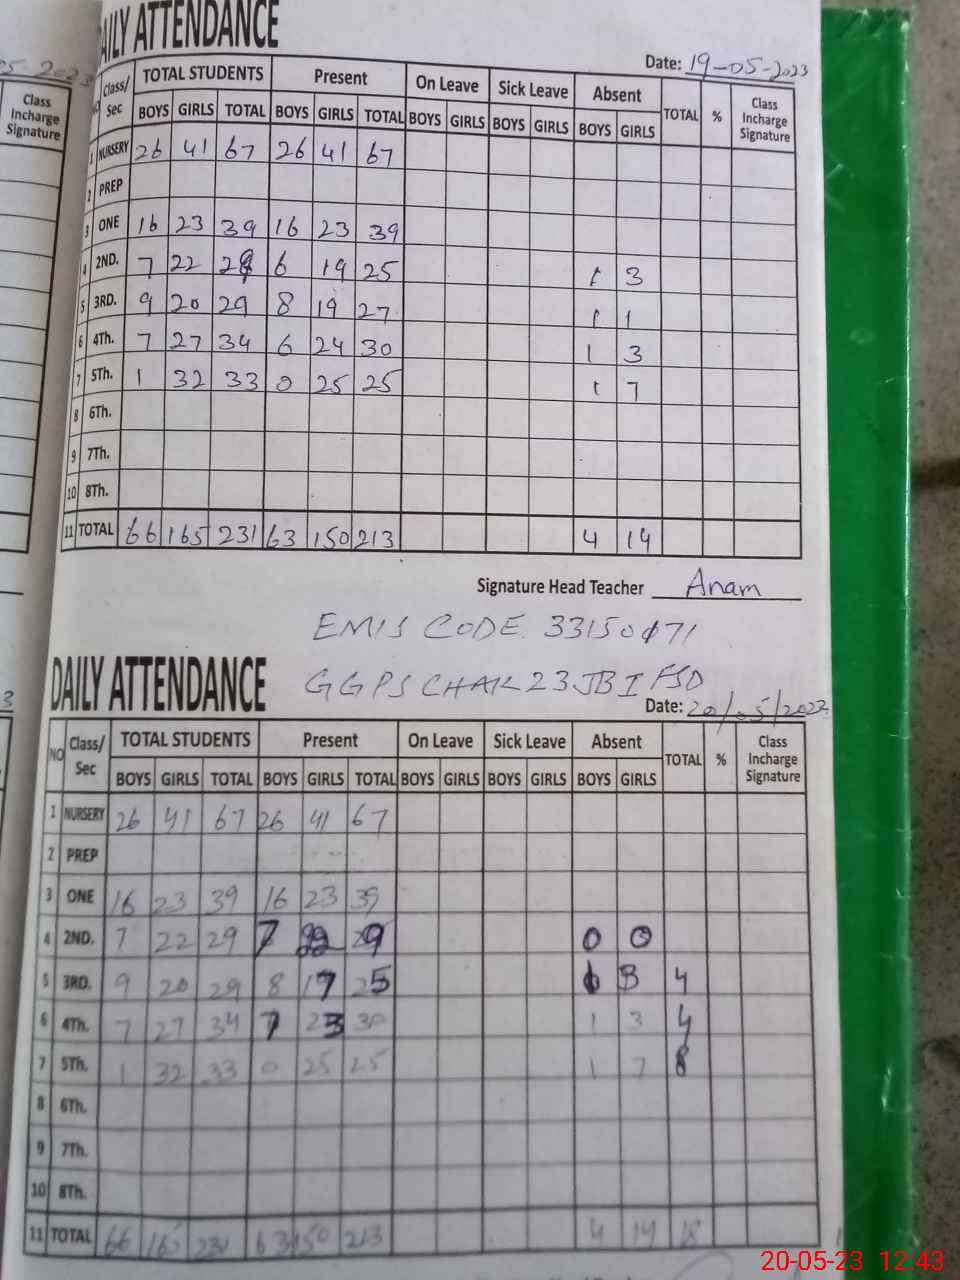 DAILY ATTENDANCE
Date: 19-05-2023
NO Class/ Sec TOTAL STUDENTS Present On Leave Sick Leave Absent TOTAL % Class Incharge Signature
BOYS GIRLS TOTAL BOYS GIRLS TOTAL BOYS GIRLS BOYS GIRLS BOYS GIRLS
1 NURSERY 26 41 67 26 41 67
2 PREP
3 ONE 16 23 39 16 23 39
4 2ND. 7 22 29 6 19 25 1 3
5 3RD. 9 20 29 8 19 27 1 1
6 4Th. 7 27 34 6 24 30 1 3
7 5Th. 1 32 33 0 25 25 1 7
8 6Th.
9 7Th.
10 8Th.
11 TOTAL 66 165 231 63 150 213 4 14
Signature Head Teacher Anam
EMIS CODE 33150071
GGPS CHAK 23 JB I FSD
DAILY ATTENDANCE
Date: 20/05/2023
NO Class/ Sec TOTAL STUDENTS Present On Leave Sick Leave Absent TOTAL % Class Incharge Signature
BOYS GIRLS TOTAL BOYS GIRLS TOTAL BOYS GIRLS BOYS GIRLS BOYS GIRLS
1 NURSERY 26 41 67 26 41 67
2 PREP
3 ONE 16 23 39 16 23 39
4 2ND. 7 22 29 7 22 29 0 0
5 3RD. 9 20 29 8 17 25 3 4
6 4Th. 7 27 34 7 23 30 1 3 4
7 5Th. 1 32 33 0 25 25 1 7 8
8 6Th.
9 7Th.
10 8Th.
11 TOTAL 66 165 231 63 150 213 4 14 18
Class Incharge Signature
20-05-23 12:43